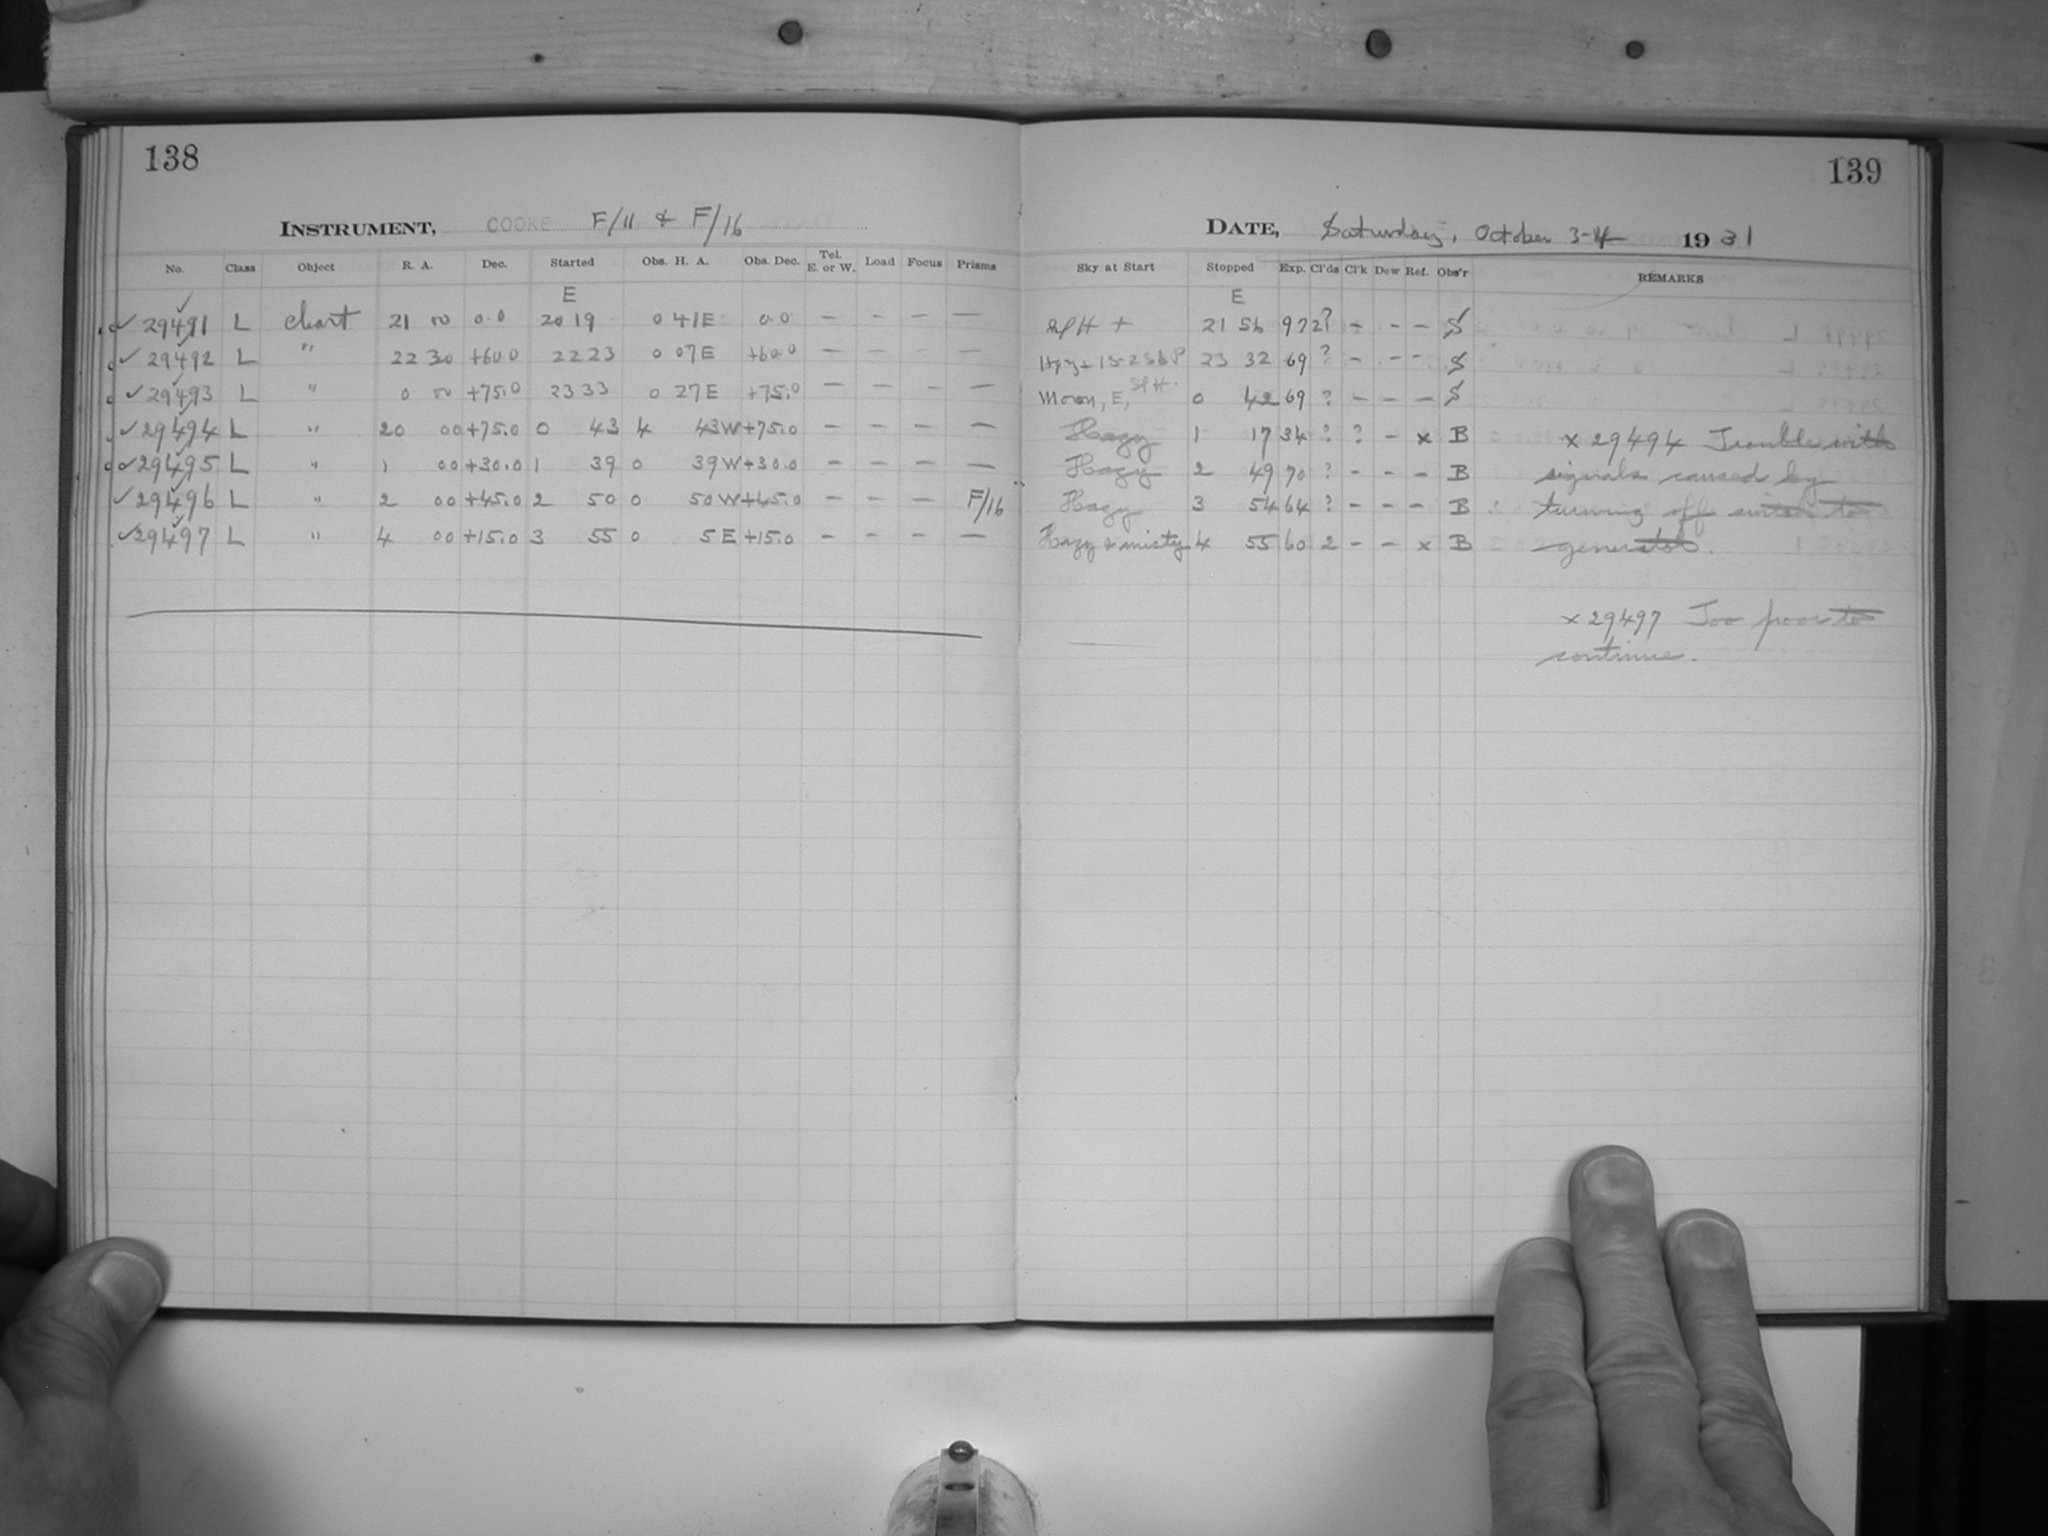 138
INSTRUMENT, COOKE F/11 & F/16
No. Class Object R. A. Dec. Started Obs. H. A. Obs. Dec. Tel. E. or W. Load Focus Prisms
E
29491 L chart 21 00 0.0 20 19 0 41E 0.0 — — — —
29492 L " 22 30 +60.0 22 23 0 07E +60.0 — — — —
29493 L " 0 00 +75.0 23 33 0 27E +75.0 — — — —
29494 L " 20 00 +75.0 0 43 4 43W +75.0 — — — —
29495 L " 1 00 +30.0 1 39 0 39W +30.0 — — — —
29496 L " 2 00 +45.0 2 50 0 50W +45.0 — — — F/16
29497 L " 4 00 +15.0 3 55 0 5 E +15.0 — — — —
139
DATE, Saturday, October 3-4 1931
Sky at Start Stopped Exp. Cl'ds Cl'k Dew Ref. Obs'r REMARKS
E
SPH + 21 56 97 2? - - - S
23 32 69 ? - - - S
Moon, E, SPH. 0 42 69 ? - - - S
Hazy 1 17 34 ? ? - x B x 29494 Trouble with
Hazy 2 49 70 ? - - - B signals caused by
Hazy 3 54 64 ? - - - B turning off switch to
Hazy & misty 4 55 60 2 - - x B generator.
x 29497 Too poor to
continue.